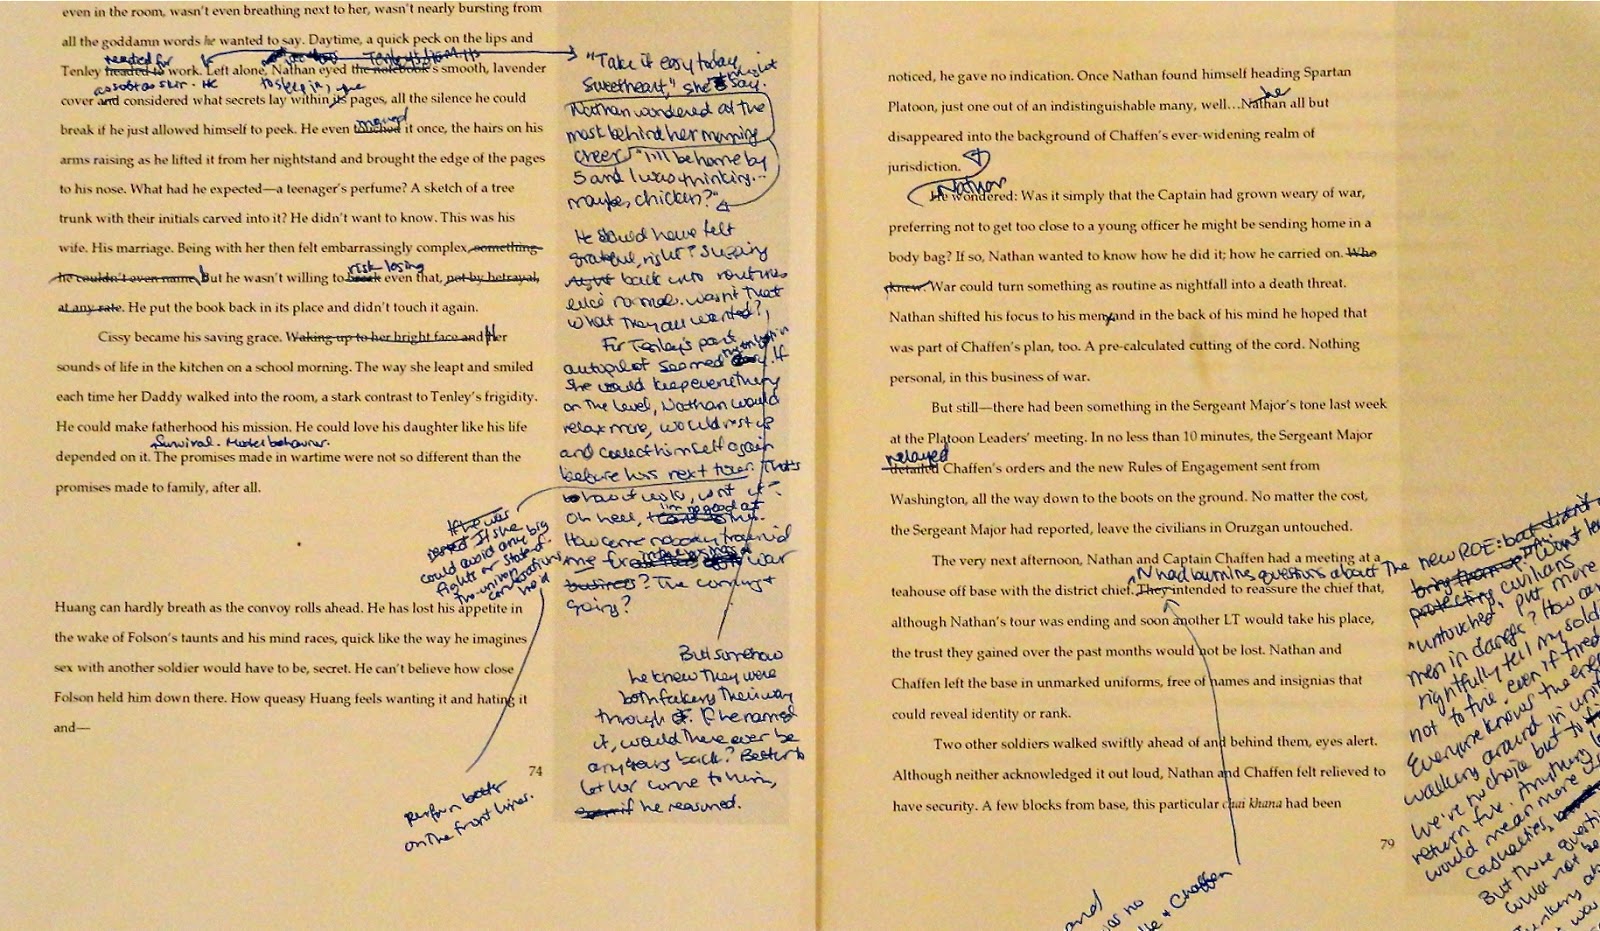 even in the room, wasn't even breathing next to her, wasn't nearly bursting from
all the goddamn words he wanted to say. Daytime, a quick peck on the lips and
needed for Tenley's lips
Tenley headed to work. Left alone, Nathan eyed the notebook's smooth, lavender
as soft as skin. He to sleep in, he
cover and considered what secrets lay within its pages, all the silence he could
break if he just allowed himself to peek. He even touched it once, the hairs on his
moved
arms raising as he lifted it from her nightstand and brought the edge of the pages
to his nose. What had he expected—a teenager's perfume? A sketch of a tree
trunk with their initials carved into it? He didn't want to know. This was his
wife. His marriage. Being with her then felt embarrassingly complex, something
risk losing
he couldn't even name, but he wasn't willing to break even that, not by betrayal,
at any rate. He put the book back in its place and didn't touch it again.
Cissy became his saving grace. Waking up to her bright face and Her
sounds of life in the kitchen on a school morning. The way she leapt and smiled
each time her Daddy walked into the room, a stark contrast to Tenley's frigidity.
He could make fatherhood his mission. He could love his daughter like his life
Survival. Model behavior.
depended on it. The promises made in wartime were not so different than the
promises made to family, after all.
Huang can hardly breath as the convoy rolls ahead. He has lost his appetite in
the wake of Folson's taunts and his mind races, quick like the way he imagines
sex with another soldier would have to be, secret. He can't believe how close
Folson held him down there. How queasy Huang feels wanting it and hating it
and—
74
"Take it easy today,
sweetheart," she might say.
Nathan wondered at the
mask behind her morning
cheer. "I'll be home by
5 and I was thinking...
maybe, chicken?"
He should have felt
grateful, right? Slipping
right back into routines
like normal. Wasn't that
what they all wanted?
For Tenley's part,
autopilot seemed If
she would keep everything
on the level, Nathan would
relax more, would rest up
and collect himself again
before his next tour. That's
how it works, isn't it?
Oh hell, I'm no good at this.
How come nobody trained
me for war
business? The coming &
going?
But somehow
he knew they were
both faking their way
through it. If he named
it, would there ever be
any going back? Better to
let her come to him,
if he reasoned.
If he was
rested If she
could avoid any big
fights or state of
the union
conversations
he'd
perform better
on the front lines.
noticed, he gave no indication. Once Nathan found himself heading Spartan
he
Platoon, just one out of an indistinguishable many, well…Nathan all but
disappeared into the background of Chaffen's ever-widening realm of
jurisdiction.
Nathan
He wondered: Was it simply that the Captain had grown weary of war,
preferring not to get too close to a young officer he might be sending home in a
body bag? If so, Nathan wanted to know how he did it; how he carried on. Who
knew. War could turn something as routine as nightfall into a death threat.
Nathan shifted his focus to his men, and in the back of his mind he hoped that
was part of Chaffen's plan, too. A pre-calculated cutting of the cord. Nothing
personal, in this business of war.
But still—there had been something in the Sergeant Major's tone last week
at the Platoon Leaders' meeting. In no less than 10 minutes, the Sergeant Major
relayed
detailed Chaffen's orders and the new Rules of Engagement sent from
Washington, all the way down to the boots on the ground. No matter the cost,
the Sergeant Major had reported, leave the civilians in Oruzgan untouched.
The very next afternoon, Nathan and Captain Chaffen had a meeting at a
N had burning questions about the new ROE:
teahouse off base with the district chief. They intended to reassure the chief that,
although Nathan's tour was ending and soon another LT would take his place,
the trust they gained over the past months would not be lost. Nathan and
Chaffen left the base in unmarked uniforms, free of names and insignias that
could reveal identity or rank.
Two other soldiers walked swiftly ahead of and behind them, eyes alert.
Although neither acknowledged it out loud, Nathan and Chaffen felt relieved to
have security. A few blocks from base, this particular chai khana had been
79
but didn't
bring them up.
protecting civilians
"untouched," put more
men in danger? How can
rightfully tell my soldi
not to fire even if fired
Everyone knows the ene
walking around in uni
We're no choice but to
return fire. Anything
would mean more
casualties,
But these questi
could not be
and
was no
& Chaffen